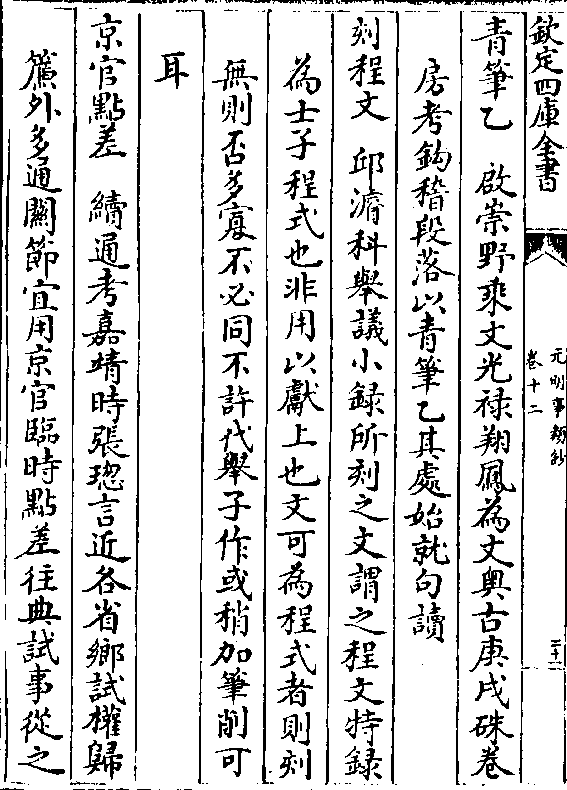 欽定四庫全書
元明事類鈔
卷十二
二十一
青筆乙　啟崇野乘文光禄翔鳳為文奥古庚戌硃卷
房考鈎稽段落以青筆乙其處始就句讀
刻程文　邱濬科舉議小録所刻之文謂之程文特録
為士子程式也非用以獻上也文可為程式者則刻
無則否多寡不必同不許代舉子作或稍加筆削可
耳
京官點差　續通考嘉靖時張璁言近各省鄉試權歸
簾外多通關節宜用京官臨時點差往典試事從之